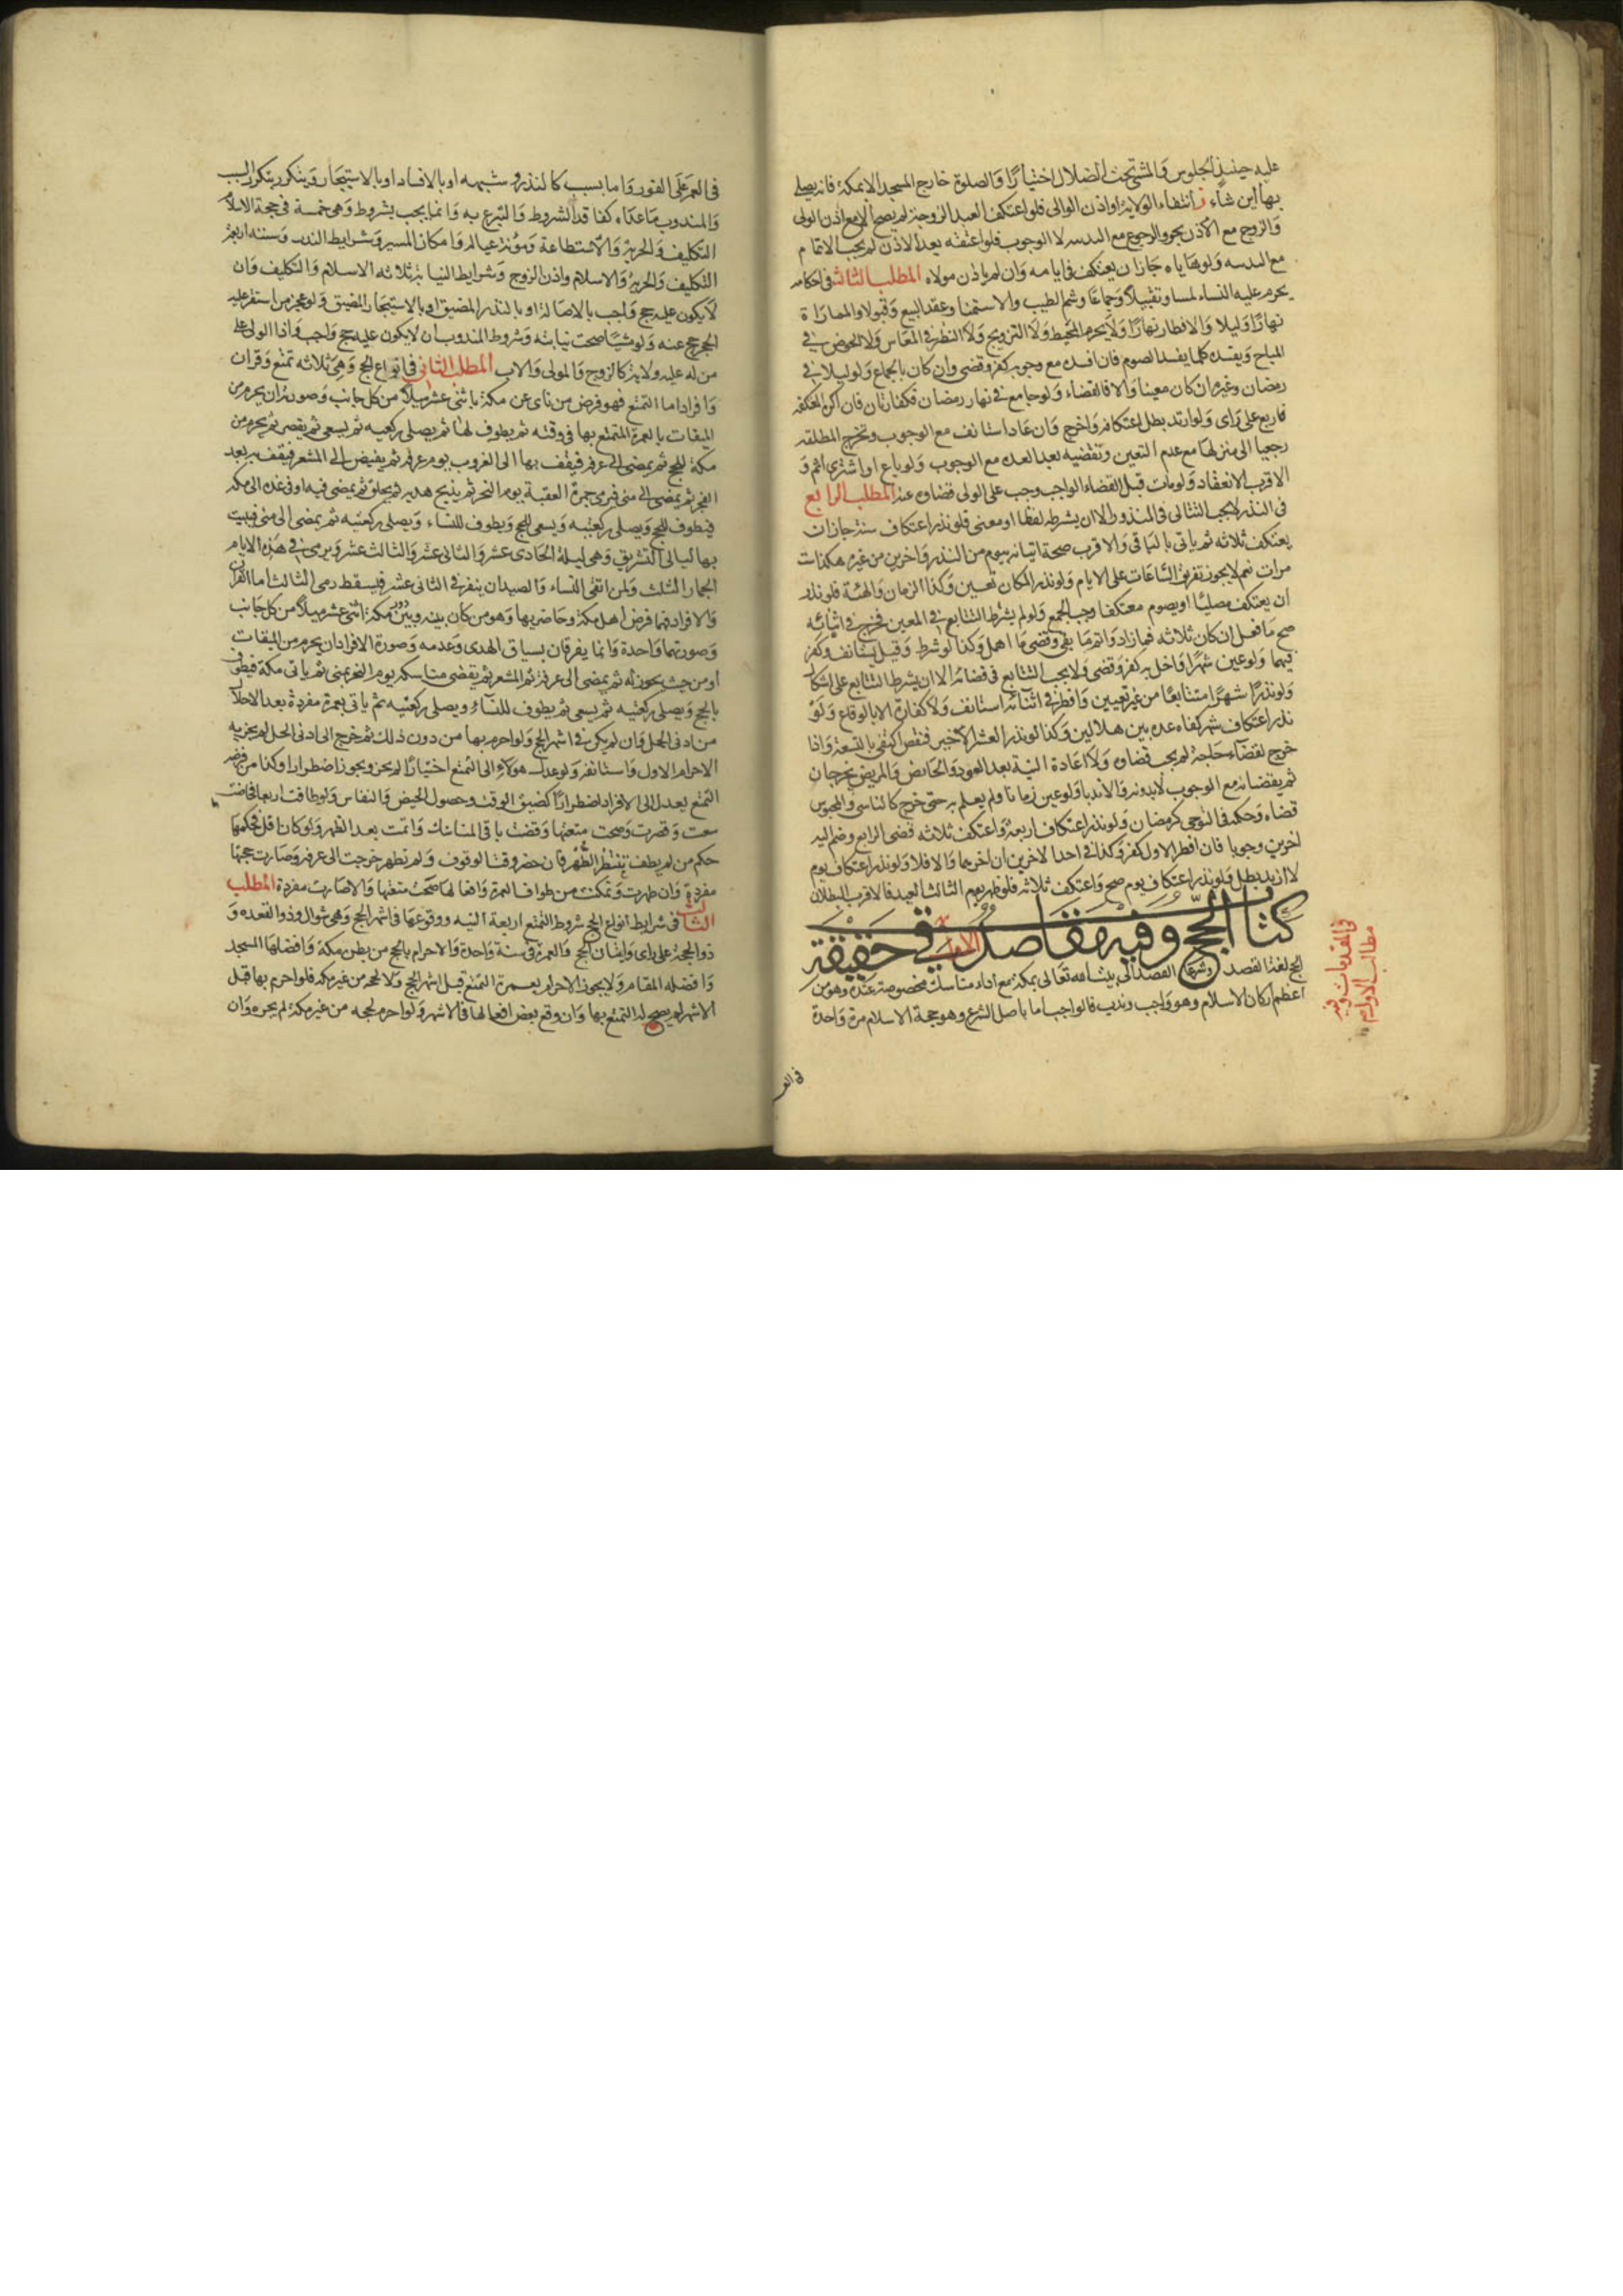 عليه حينئذ الجلوس والمشي تحت الضلال اختيارا والصلوة خارج المسجد الا بمكة فانه يصلي
بها اين شاء ز انتفاء الولاية او اذن الوالي فلو اعتكف العبد او الزوجة لم يصح الا مع اذن المولى
والزوج مع الاذن يجوز الرجوع مع الندبية لا الوجوب فلو اعتقه بعد الاذن لم يجب الاتمام
مع الندبيه ولو هاياه جاز ان يعتكف في ايامه وان لم ياذن مولاه المطلب الثالث في احكامه
يحرم عليه النساء لمسا وتقبيلا وجماعا وشم الطيب والاستمنا وعقد البيع وقبولا والمماراة
نهارا وليلا والافطار نهارا ولا يحرم المخيط ولا التزويج ولا النظر في المعاش ولا الخوض في
المباح ويفسده كلما يفسد الصوم فان افسده مع وجوبه كفر وقضى وان كان بالجماع ولو ليلا في
رمضان وغيره ان كان معينا والا فالقضاء ولو جامع في نهار رمضان فكفارتان فان اكره المعتكفة
فاربع على راى ولو ارتد بطل اعتكافه واخرج فان عاد استانف مع الوجوب وتخرج المطلقة
رجعيا الى منزلها مع عدم التعين وتقضيه بعد العده مع الوجوب ولو باع او اشترى اثم و
الاقرب الانعقاد ولو مات قبل القضاء الواجب وجب على الولى قضاوه عنه المطلب الرابع
فى النذر لا يجب التتالى فى المنذور الا ان يشرطه لفظا او معنى فلو نذر اعتكاف ستة جاز ان
يعتكف ثلاثه ثم ياتى بالباقى والاقرب صحة اتيانه بيوم من النذر واخرين من غيره هكذا ست
مرات نعم لا يجوز تفريق الساعات على الايام ولو نذر المكان تعين وكذا الزمان والهيئة فلو نذر
ان يعتكف مصليا او يصوم معتكفا وجب الجمع ولو لم يشرط التتابع في المعين فخرج في اثنائه
صح ما فعل ان كان ثلاثه فما زاد واتم ما بقى وقضى ما اهمل وكذا لو شرط وقيل يستانف وكفر
فيهما ولو عين شهرا فاخل به كفر وقضى ولا يجب التتابع فى قضائه الا ان يشرط التتابع على اشكال
ولو نذر شهرا متتابعا من غير تعيين وافطر في اثنائه استانف ولا كفارة الا بالوقاع ولو
نذر اعتكاف شهر كفاه عده بين هلالين وكذا لو نذر العشر الاخير فنقص اكتفى بالتسعة واذا
خرج لقضاء حاجة لم يجب قضاوه ولا اعادة النية بعد العود والحائض والمريض يخرجان
ثم يقضيانه مع الوجوب لا بدونه والا ندبا ولو عين زمانا ولم يعلم به حتى خرج كالناسى والمحبوس
قضاه وحكمه فى التوخى كرمضان ولو نذر اعتكاف اربعة واعتكف ثلاثه قضى الرابع وضم اليه
اخرين وجوبا فان افطر الاول كفر وكذا في احد الاخرين ان اخرهما والا فلا ولو نذر اعتكاف يوم
لا ازيد بطل ولو نذر اعتكاف يوم صح واعتكف ثلاثه فلو ظهر يوم الثالث العيد فالاقرب البطلان
كتاب الحج وفيه مقاصد الاول في حقيقته
الحج لغة القصد وشرعا القصد الى بيت الله تعالى بمكة مع اداء مناسك مخصوصة عنده وهو من
اعظم اركان الاسلام وهو واجب وندب فالواجب اما باصل الشرع وهو حجة الاسلام مرة واحدة
فى المقدمات وفيه
مطالب الاول
فى العمر
فى العمر على الفور واما بسبب كالنذر وشبهه او بالافساد او بالاستيجار ويتكرر بتكرر السبب
والمندوب ما عداه كفاقد الشروط والتبرع به وانما يجب بشروط وهى خمسة فى حجة الاسلام
التكليف والحرية والاستطاعة ومؤنة عياله وامكان المسير وشرايط النذر وشبهه اربعة
التكليف والحرية والاسلام واذن الزوج وشرايط النيابة ثلاثه الاسلام والتكليف وان
لا يكون عليه حج واجب بالاصالة او بالنذر المضيق او بالاستيجار المضيق ولو عجز من استقر عليه
الحج حج عنه ولو مشيا صحت نيابته وشروط المندوب ان لا يكون عليه حج واجب واذا الولى على
من له عليه ولاية كالزوج والمولى والاب المطلب الثانى فى انواع الحج وهى ثلاثه تمتع وقران
وافراد اما التمتع فهو فرض من ناى عن مكة باثنى عشر ميلا من كل جانب وصورته ان يحرم من
الميقات بالعمرة المتمتع بها فى وقته ثم يطوف لها ثم يصلى ركعتيه ثم يسعى ثم يقصر ثم يحرم من
مكة للحج ثم يمضى الى عرفة فيقف بها الى الغروب يوم عرفة ثم يفيض الى المشعر فيقف به بعد
الفجر ثم يمضى الى منى فيرمى جمرة العقبة يوم النحر ثم يذبح هديه ثم يحلق ثم يمضى فيه او فى غده الى مكة
فيطوف للحج ويصلى ركعتيه ويسعى للحج ويطوف للنساء ويصلى ركعتيه ثم يمضى الى منى فيبيت
بها ليالى التشريق وهى ليلة الحادى عشر والثانى عشر والثالث عشر ويرمى في هذه الايام
الجمار الثلث ولمن اتقى النساء والصيد ان ينفر في الثانى عشر فيسقط رمى الثالث اما القران
والافراد فهما فرض اهل مكة وحاضريها وهو من كان بينه وبين مكة دون اثنى عشر ميلا من كل جانب
وصورتهما واحدة وانما يفرقان بسياق الهدى وعدمه وصورة الافراد ان يحرم من الميقات
او من حيث يجوز له ثم يمضى الى عرفة ثم المشعر ثم يقضى مناسكه يوم النحر بمنى ثم ياتى مكة فيطوف
بالحج ويصلى ركعتيه ثم يسعى ثم يطوف للنساء ويصلى ركعتيه ثم ياتى بعمرة مفردة بعد الاحلال
من ادنى الحل وان لم يكن فى اشهر الحج ولو احرم بها من دون ذلك ثم خرج الى ادنى الحل لم يجزيه
الاحرام الاول واستانفه ولو عدل هولاء الى التمتع اختيارا لم يجز ويجوز اضطرارا وكذا من فرضه
التمتع يعدل الى الافراد اضطرارا كضيق الوقت وحصول الحيض والنفاس ولو طافت اربعا فحاضت
سعت وقصرت وصحت متعتها وقضت باقى المناسك واتمت بعد الطهر ولو كان اقل فحكمها
حكم من لم يطف تنتظر الطهر فان حضر وقت الوقوف ولم تطهر خرجت الى عرفه وصارت حجتها
مفردة وان طهرت وتمكنت من طواف العمرة وافعالها صحت متعتها والا صارت مفردة المطلب
الثالث فى شرايط انواع الحج شروط التمتع اربعة النيه ووقوعها فى اشهر الحج وهى شوال وذو القعده و
ذو الحجة على راى واتيان الحج والعمرة فى سنة واحدة والاحرام بالحج من بطن مكة وافضلها المسجد
وافضله المقام ولا يجوز الاحرام بعمرة التمتع قبل اشهر الحج ولا لحجه من غير مكه فلو احرم بها قبل
الاشهر لم يصح له التمتع بها وان وقع بعض افعالها فى الاشهر ولو احرم لحجه من غير مكة لم يجزه وان